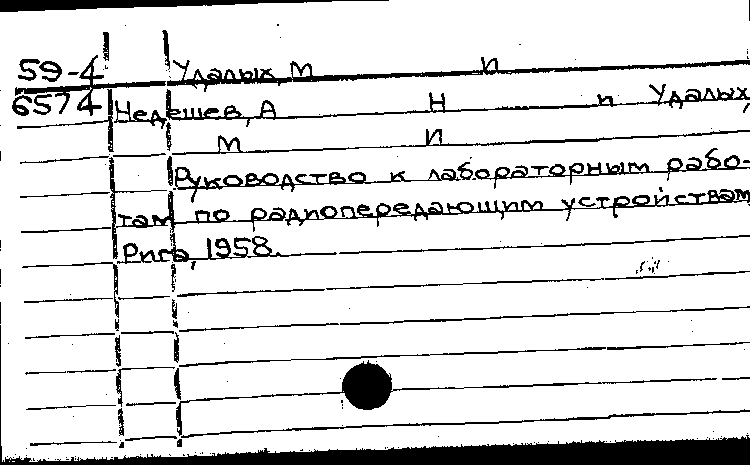 59-4 Удалых, М П
6574 Недешев, А Н и Удалых,
М П
Руководство к лабораторным рабо-
там по радиопередающим устройствам
Рига, 1958.